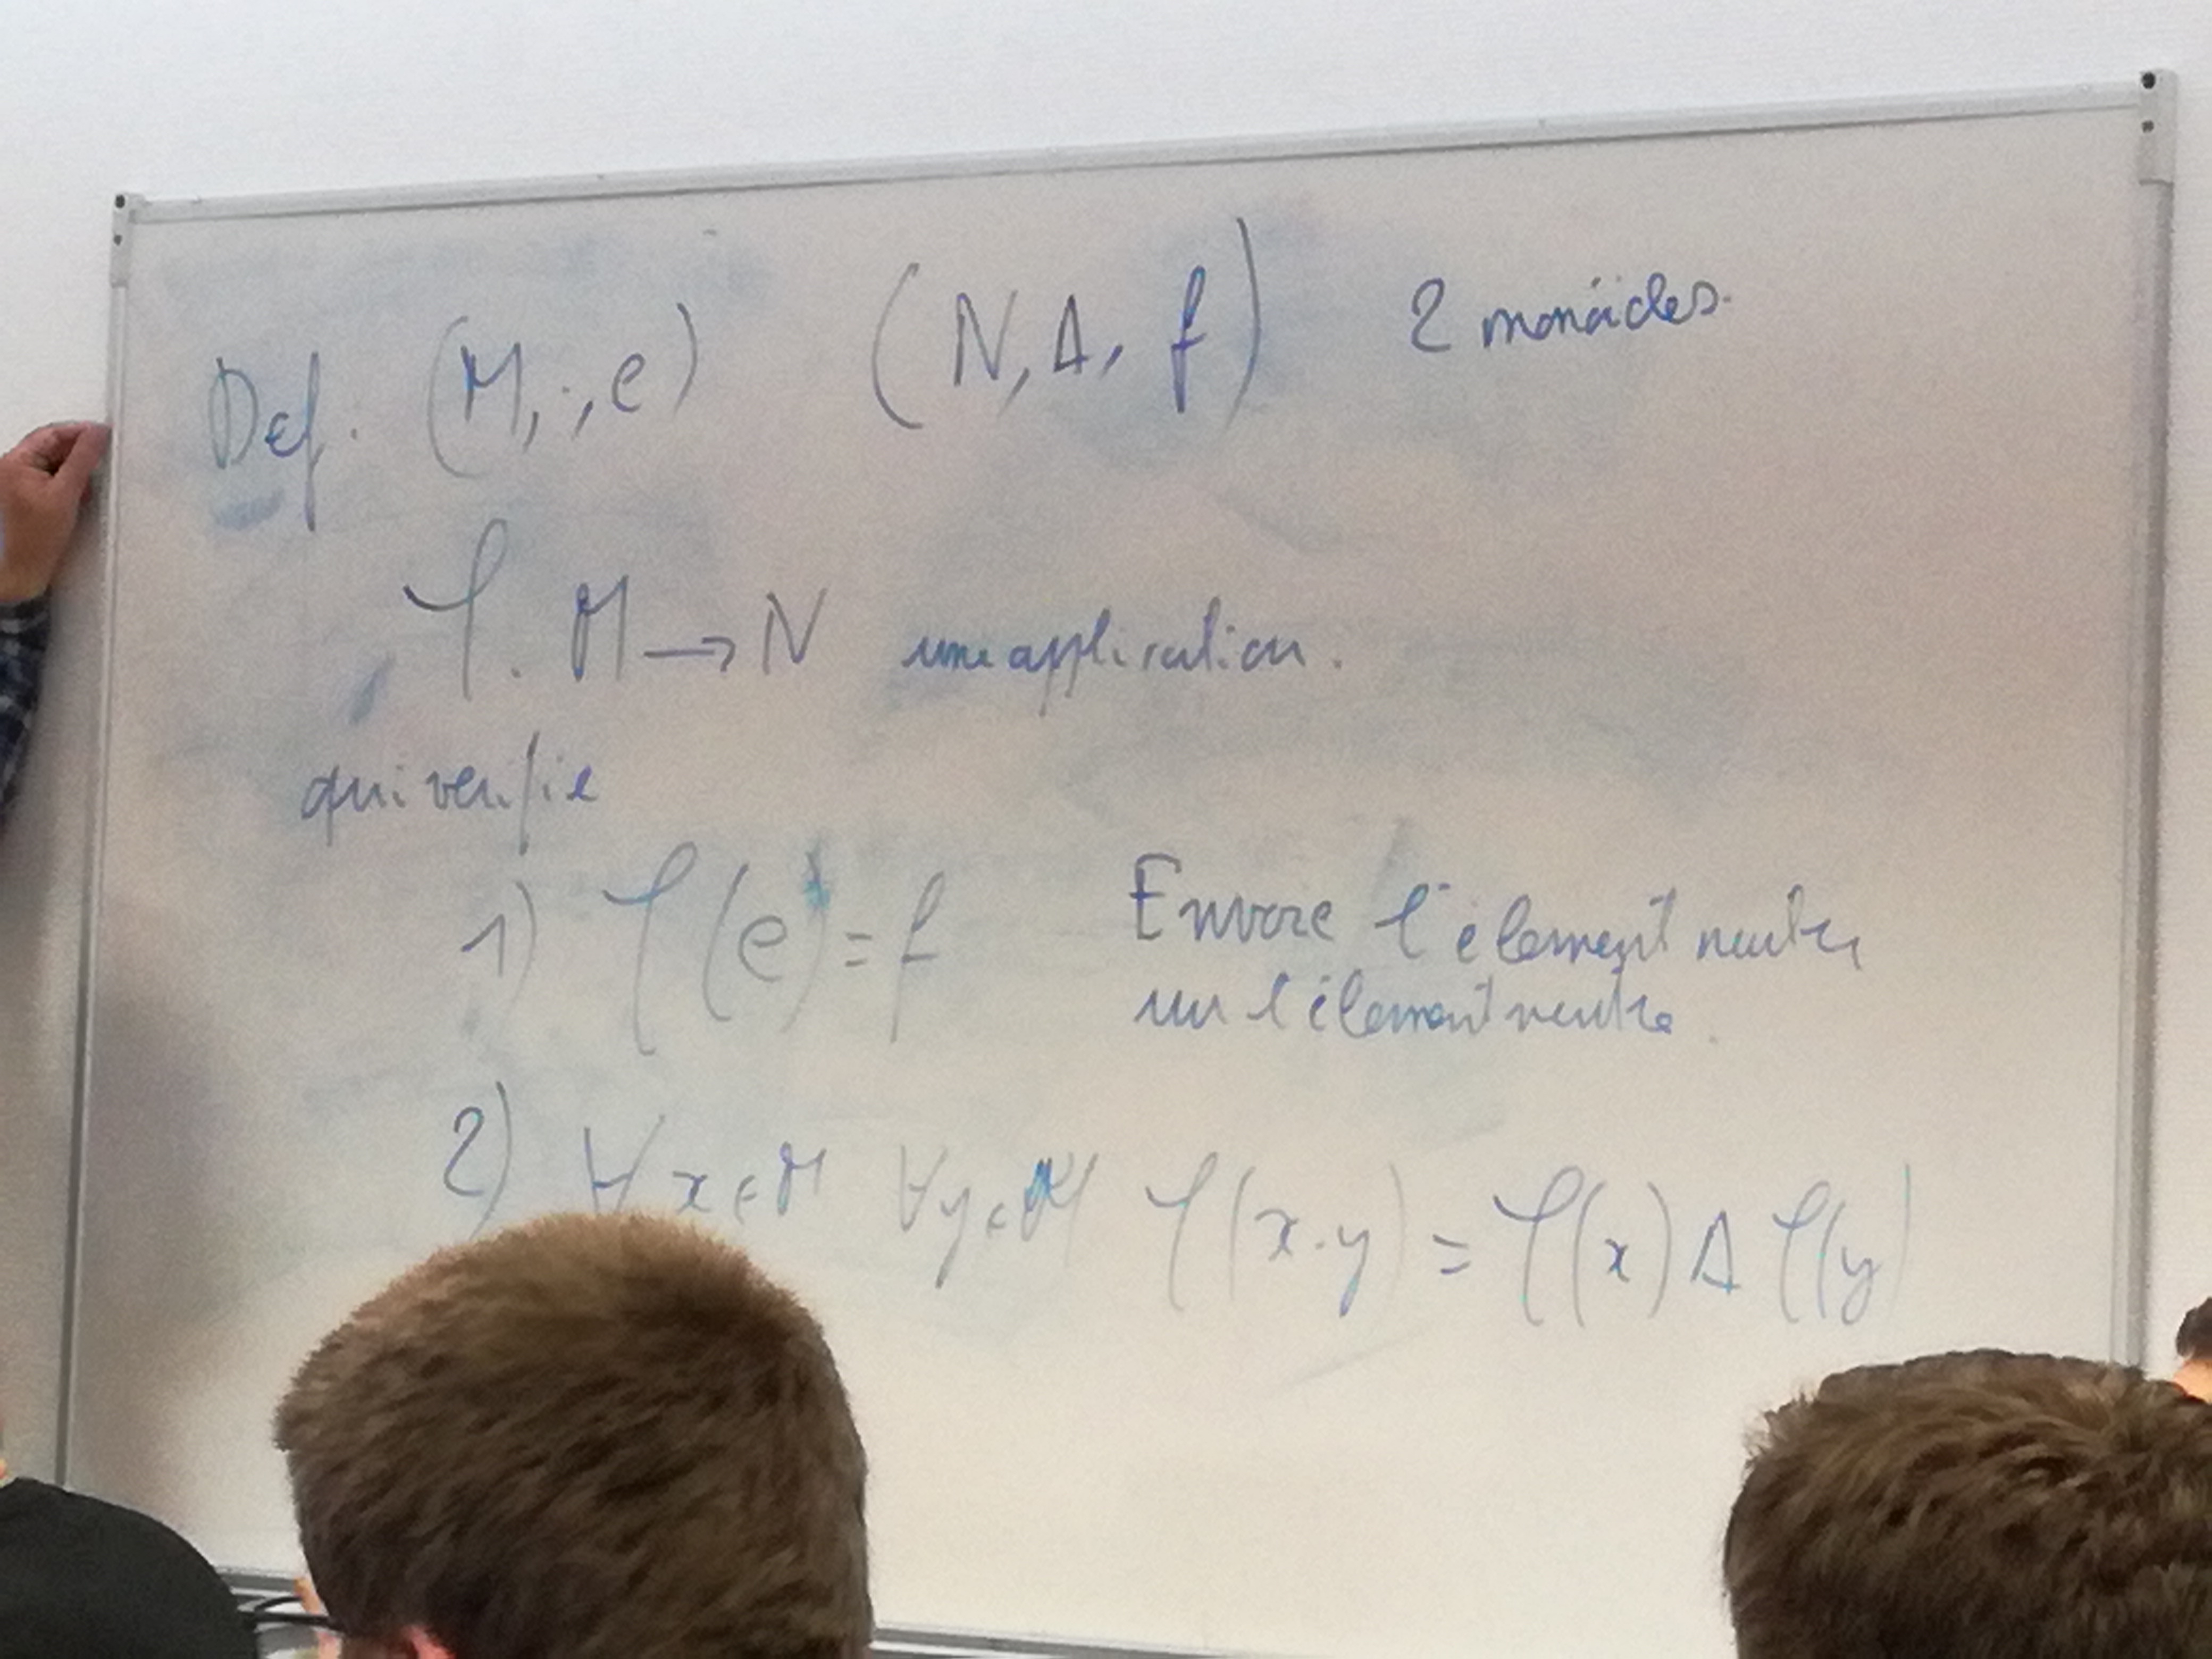 Def. (M, ·, e) (N, Δ, f) 2 monoïdes.
φ. M → N une application.
qui verifie
1) φ(e) = f Envoie l'élement neutre
sur l'élement neutre.
2) ∀ x ∈ M ∀ y ∈ M φ(x·y) = φ(x) Δ φ(y)